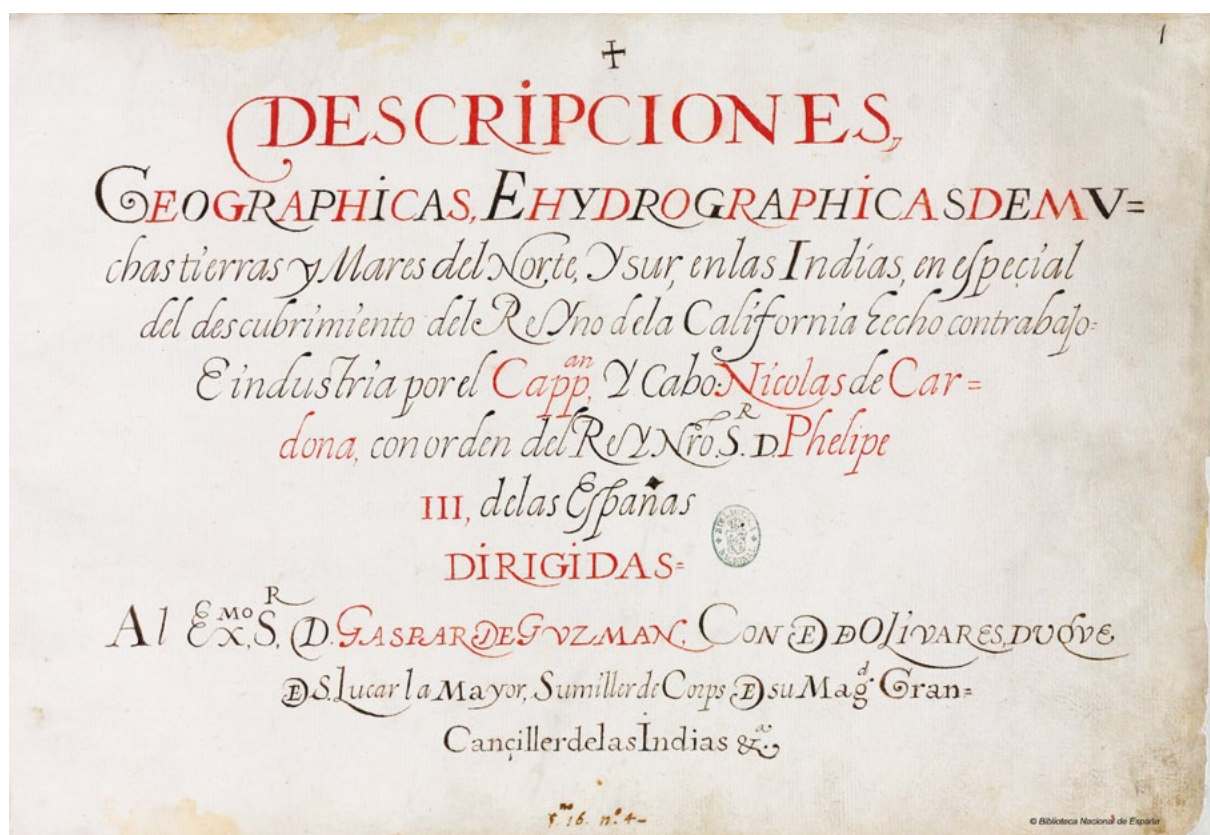 1
DESCRIPCIONES,
GEOGRAPHICAS, E HYDROGRAPHICAS DE MV=
chas tierras y Mares del Norte, Y sur, en las Indias, en especial
del descubrimiento del ReYno de la California hecho con trabajo=
E industria por el Capp.an, Y Cabo. Nicolas de Car=
dona, con orden del ReY Nro. S.R D. Phelipe
III, de las Españas
DIRIGIDAS=
Al EX.MO S.R D. GASPAR DE GVZMAN, CONDE DE OLIVARES, DVQVE
DE S. Lucar la Mayor, Sumiller de Corps DE su Mag.d Gran=
Cançiller de las Indias &.a
BIBLIOTECA NACIONAL
16 n.o 4
© Biblioteca Nacional de España